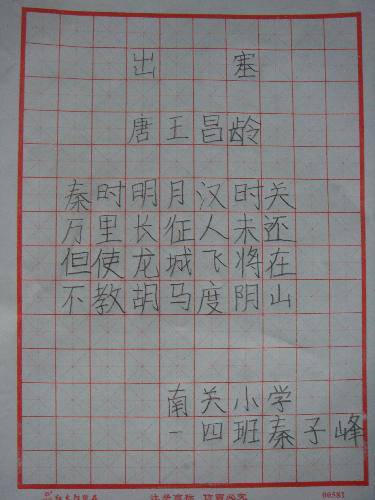 出塞
唐王昌龄
秦时明月汉时关
万里长征人未还
但使龙城飞将在
不教胡马度阴山
南关小学
一四班秦子峰
00583